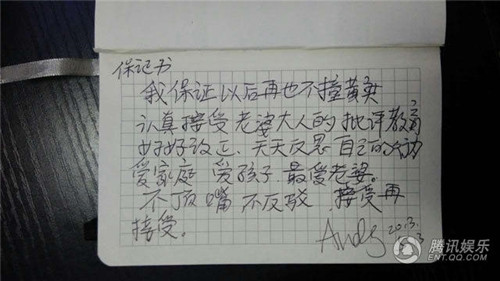 保证书
我保证以后再也不撞黄实
认真接受老婆大人的批评教育
好好改正、天天反思自己的
爱家庭 爱孩子 最爱老婆。
不顶嘴 不反驳 接受再
接受。
Andy 20.3.
腾讯娱乐
ENT.QQ.COM